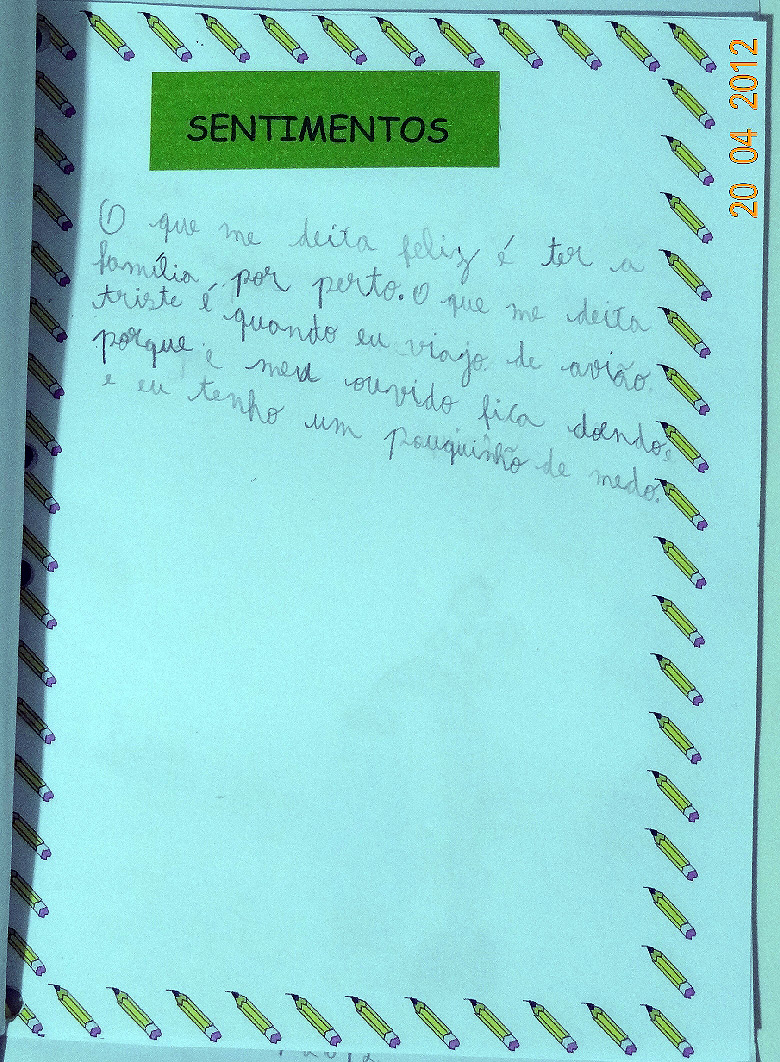 SENTIMENTOS
20 04 2012
O que me deita feliz é ter a
família por perto. O que me deita
triste é quando eu viajo de avião.
porque e meu ouvido fica doendo,
e eu tenho um pouquinho de medo.